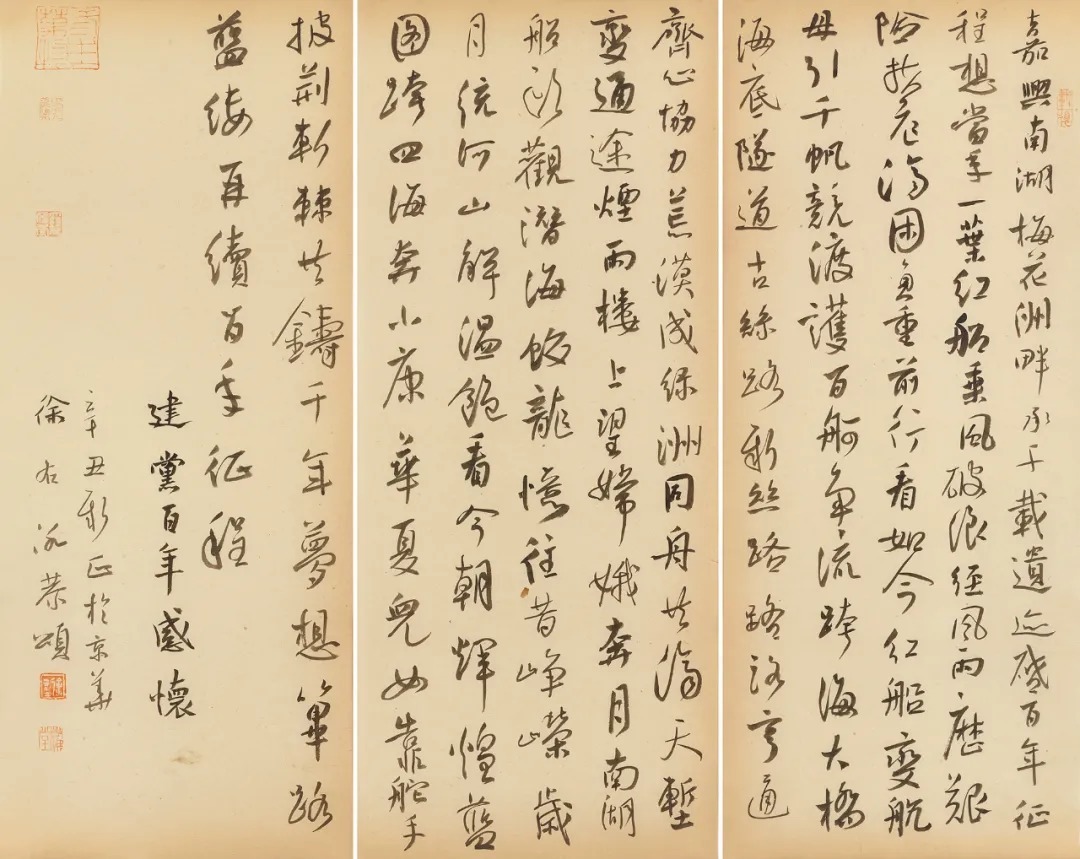 嘉興南湖梅花洲畔承千載遺迹啓百年征
程想當年一葉紅船乘風破浪經風雨歷艱
險扶危濟困負重前行看如今紅船變航
母引千帆競渡護百舸爭流跨海大橋
海底隧道古絲路新丝路路路亨通
齊心協力荒漠成綠洲同舟共濟天塹
變通途煙雨樓上望嫦娥奔月南湖
船頭觀潛海蛟龍憶往昔崢嶸歲
月統河山解溫飽看今朝輝煌藍
圖跨四海奔小康華夏兒女靠舵手
披荆斬棘共鑄千年夢想篳路
藍縷再續百年征程
建黨百年感懷
辛丑新正於京華
徐右冰恭頌